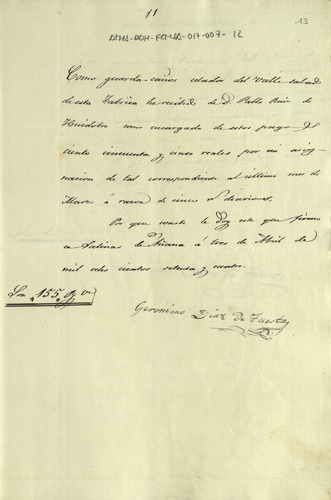 11
13
ATHA-DAH-FCHSA-017-007-12
Como guarda-caños celador del Valle salado
de esta Fabrica he recibido de D. Pablo Ruiz de
Huidobro como encargado de estos pagos
ciento cincuenta y cinco reales por mi asig-
nacion de tal correspondiente al último mes de
Marzo á razon de cinco rs diarios.
Por que conste le doy este que firmo
en Salinas de Añana á tres de Abril de
mil ocho cientos setenta y cuatro.
Son 155 rs vn
Geronimo Diaz de Tuesta